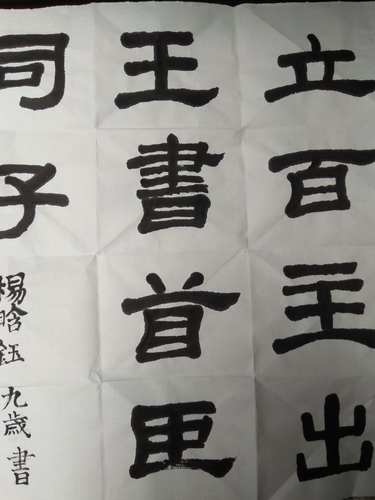 立百主出
王書首臣
司子
楊晗鈺 九歲書